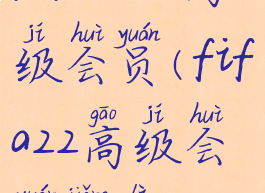 jí huì yuán
级会员(fif
gāo jí huì
a22高级会